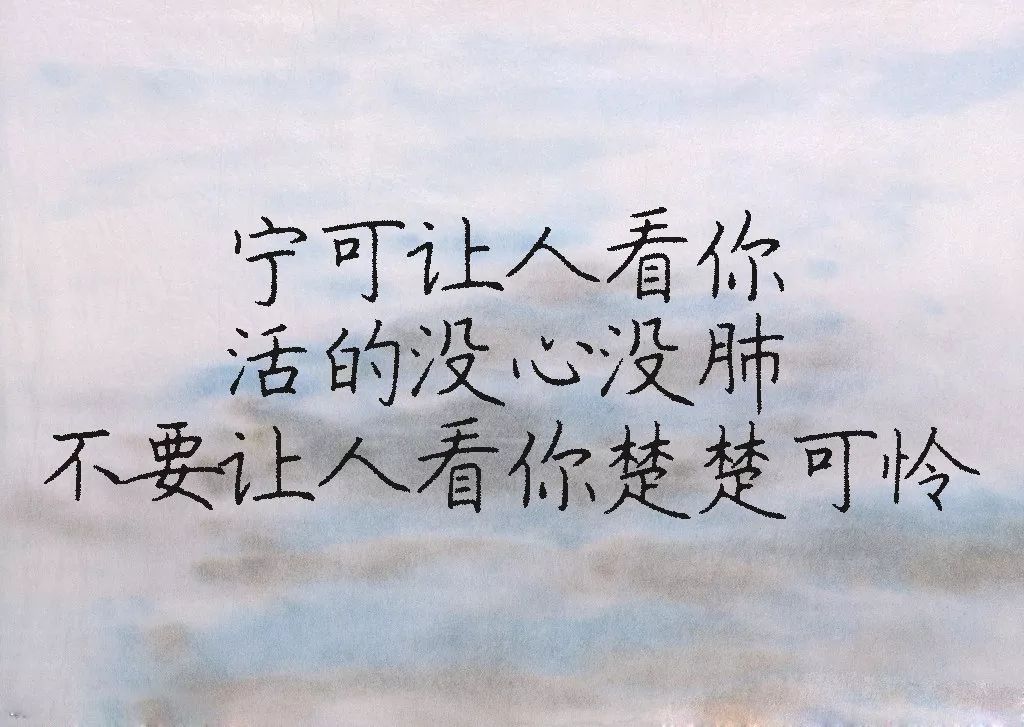 宁可让人看你
活的没心没肺
不要让人看你楚楚可怜